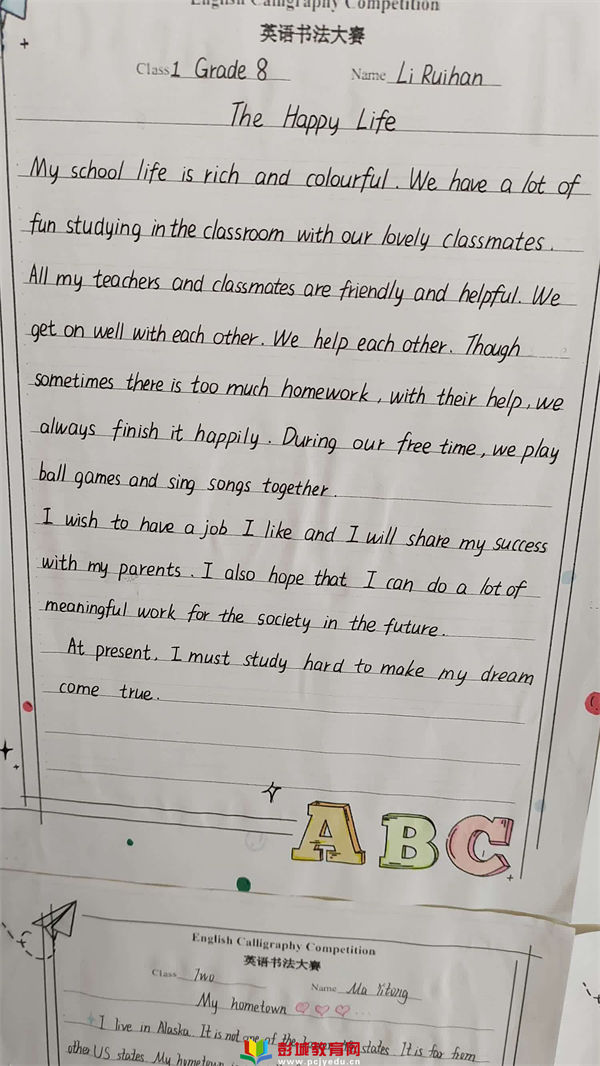 English Calligraphy Competition
英语书法大赛
Class 1 Grade 8 Name Li Ruihan
The Happy Life
My school life is rich and colourful. We have a lot of
fun studying in the classroom with our lovely classmates.
All my teachers and classmates are friendly and helpful. We
get on well with each other. We help each other. Though
sometimes there is too much homework, with their help, we
always finish it happily. During our free time, we play
ball games and sing songs together.
I wish to have a job I like and I will share my success
with my parents. I also hope that I can do a lot of
meaningful work for the society in the future.
At present, I must study hard to make my dream
come true.
ABC
English Calligraphy Competition
英语书法大赛
Class Two Name Ma Yitong
My hometown
I live in Alaska. It is not one of the states. It is far from
other US states. My hometown
彭城教育网
www.pcjyedu.cn